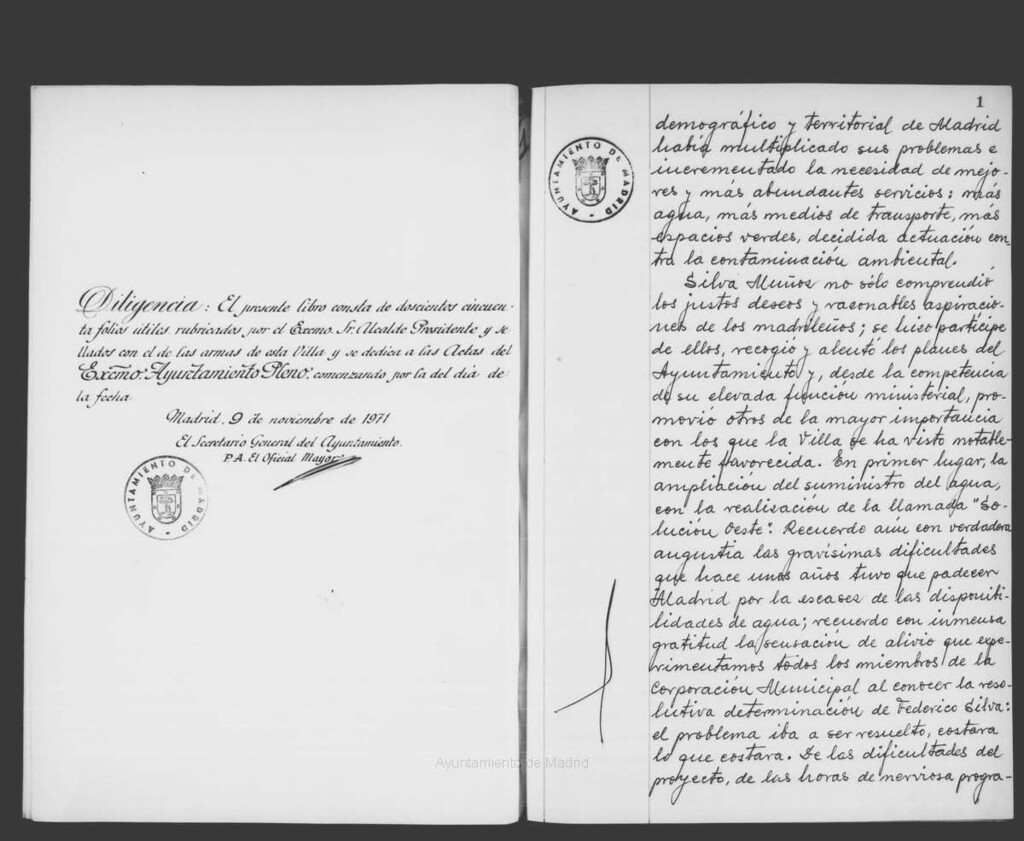 Diligencia: El presente libro consta de doscientos cincuen-
ta folios útiles rubricados por el Excmo. Sr. Alcalde Presidente y se-
llados con el de las armas de esta Villa y se dedica a las Actas del
Excmo. Ayuntamiento Pleno, comenzando por la del día de
la fecha
Madrid, 9 de noviembre de 1971
El Secretario General del Ayuntamiento.
P.A. El Oficial Mayor
AYUNTAMIENTO DE MADRID
1
AYUNTAMIENTO DE MADRID
demográfico y territorial de Madrid
había multiplicado sus problemas e
incrementado la necesidad de mejo-
res y más abundantes servicios: más
agua, más medios de transporte, más
espacios verdes, decidida actuación con-
tra la contaminación ambiental.
Silva Muñoz no sólo comprendió
los justos deseos y razonables aspiracio-
nes de los madrileños; se hizo partícipe
de ellos, recogió y alentó los planes del
Ayuntamiento y, desde la competencia
de su elevada función ministerial, pro-
movió otros de la mayor importancia
con los que la Villa se ha visto notable-
mente favorecida. En primer lugar, la
ampliación del suministro del agua,
con la realización de la llamada "So-
lución Oeste". Recuerdo aún con verdadera
angustia las gravísimas dificultades
que hace unos años tuvo que padecer
Madrid por la escasez de las disponibi-
lidades de agua; recuerdo con inmensa
gratitud la sensación de alivio que expe-
rimentamos todos los miembros de la
Corporación Municipal al conocer la reso-
lutiva determinación de Federico Silva:
el problema iba a ser resuelto, costara
lo que costara. De las dificultades del
proyecto, de las horas de nerviosa progra-
Ayuntamiento de Madrid